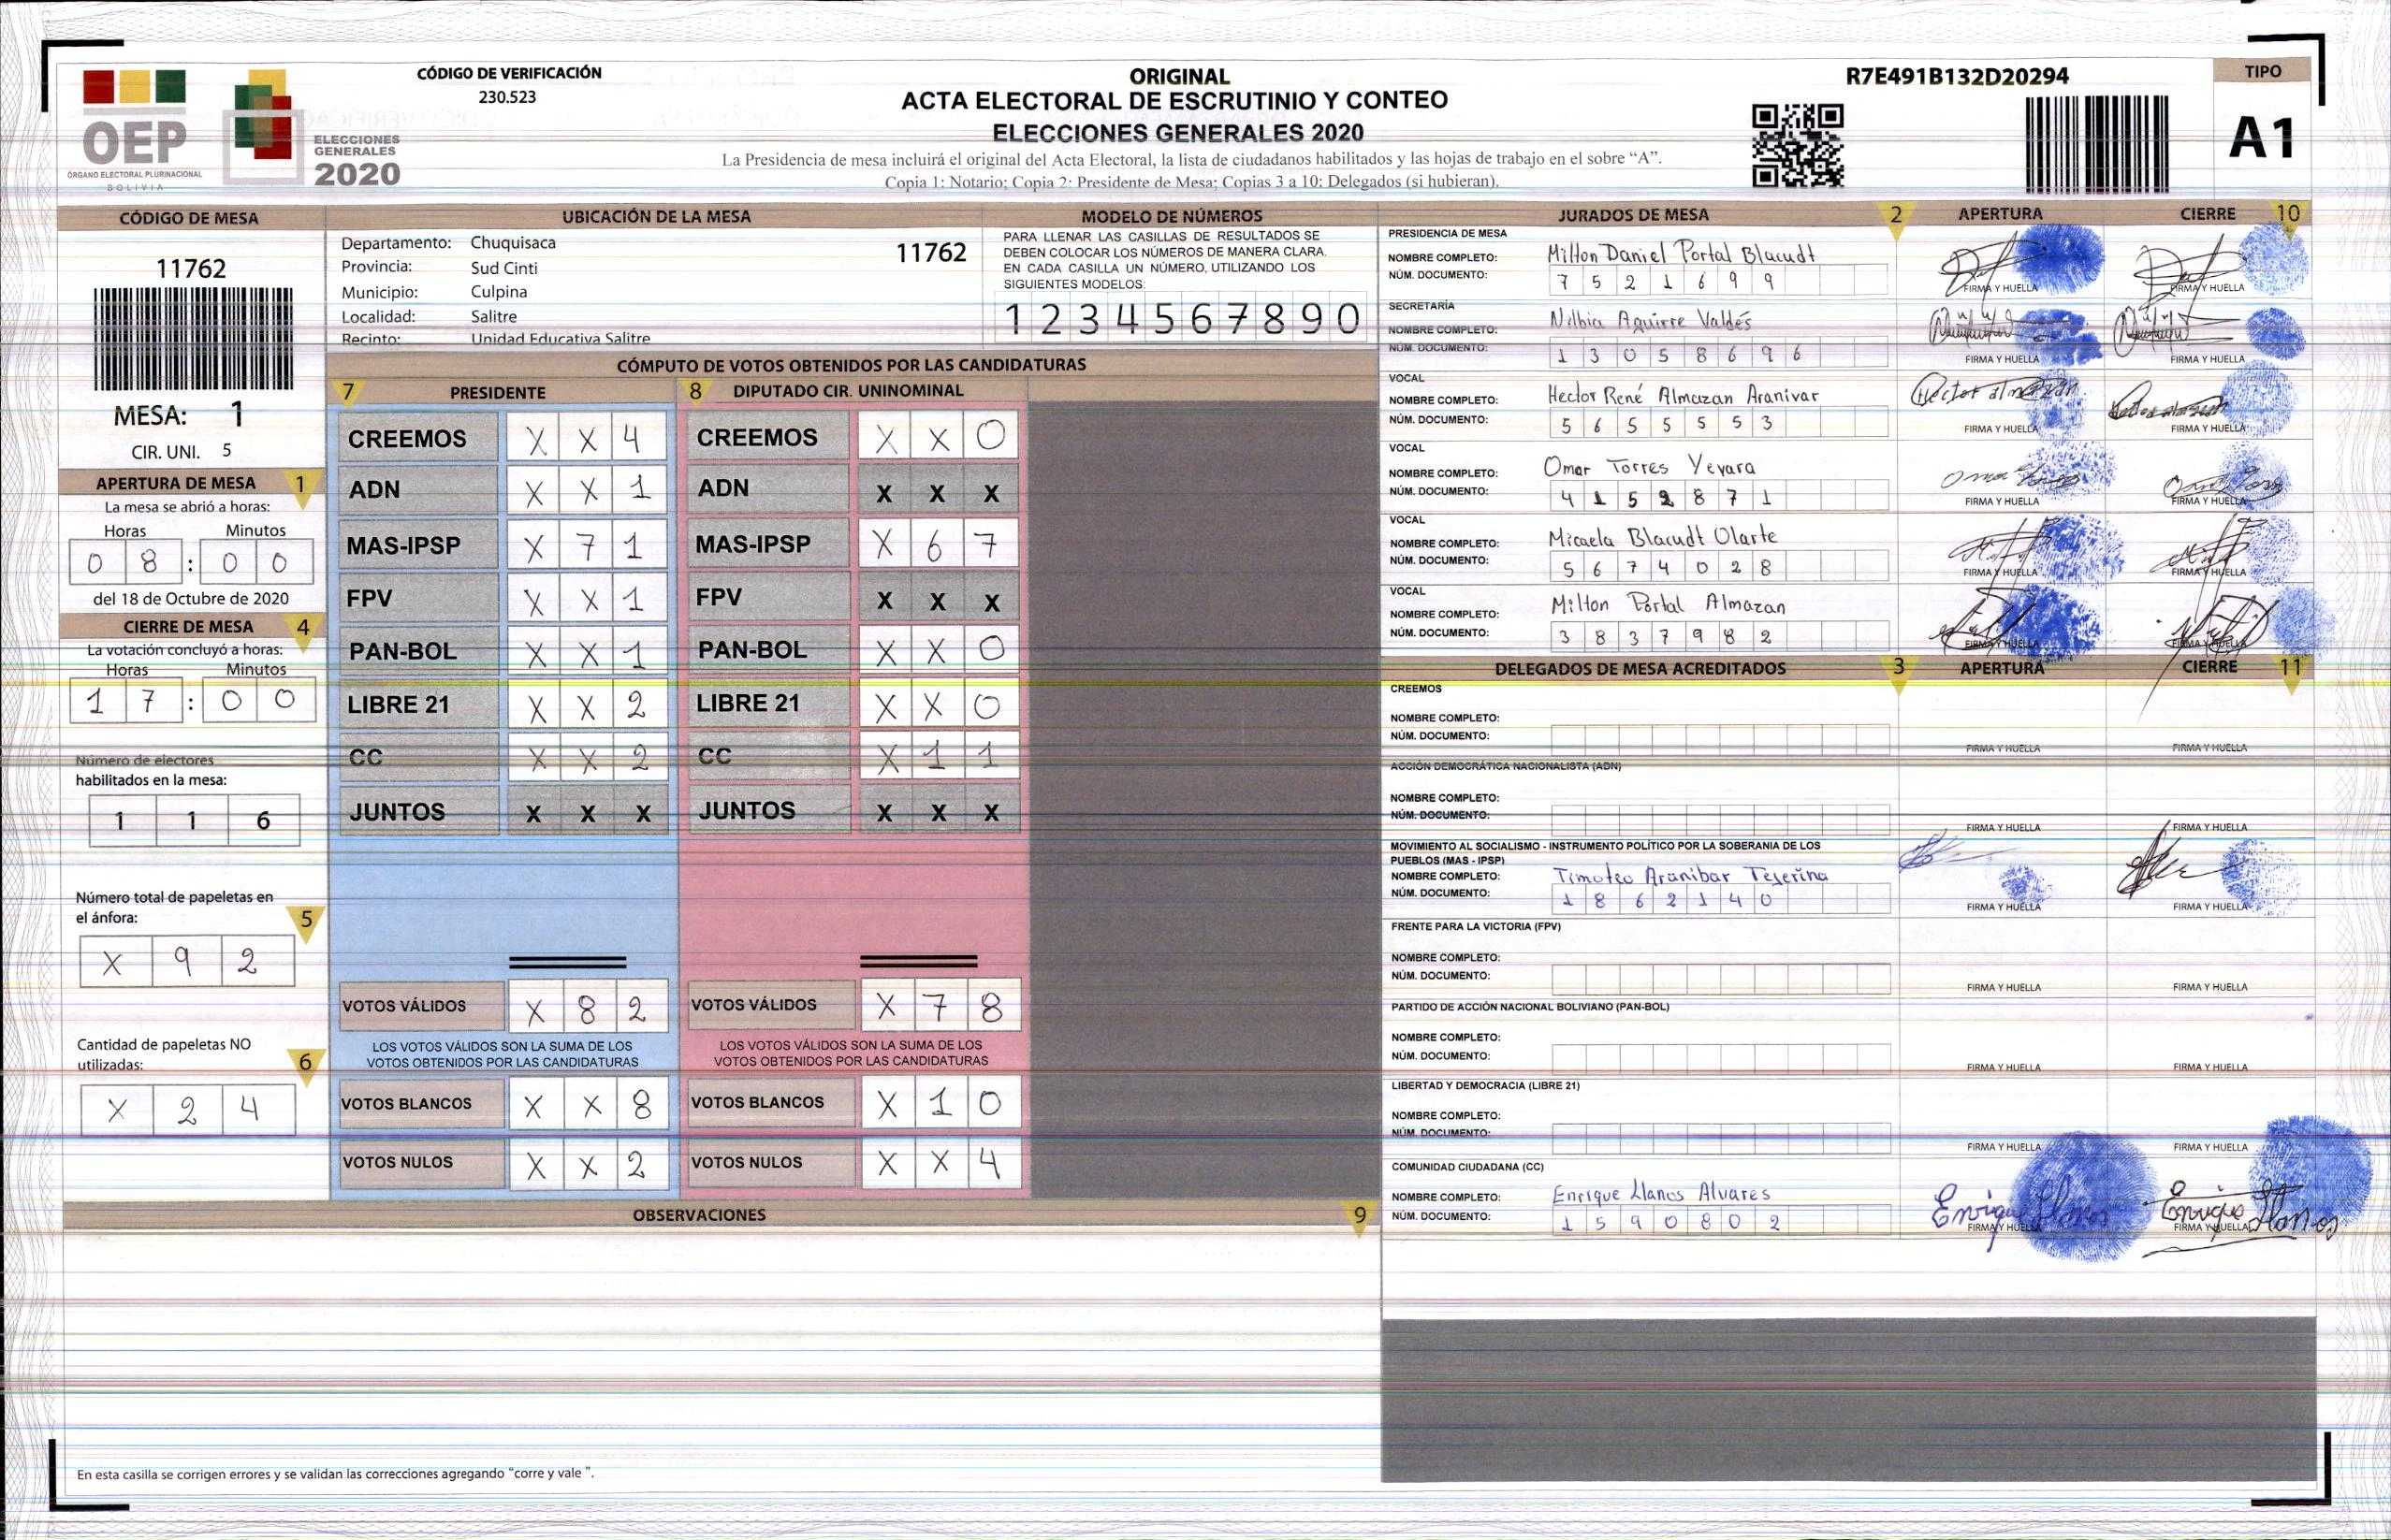 CÓDIGO DE VERIFICACIÓN
230.523
ORIGINAL
ACTA ELECTORAL DE ESCRUTINIO Y CONTEO
ELECCIONES GENERALES 2020
La Presidencia de mesa incluirá el original del Acta Electoral, la lista de ciudadanos habilitados y las hojas de trabajo en el sobre “A”.
Copia 1: Notario; Copia 2: Presidente de Mesa; Copias 3 a 10: Delegados (si hubieran).
R7E491B132D20294
TIPO
A1
OEP
ÓRGANO ELECTORAL PLURINACIONAL
BOLIVIA
ELECCIONES
GENERALES
2020
CÓDIGO DE MESA
11762
MESA: 1
CIR. UNI. 5
APERTURA DE MESA 1
La mesa se abrió a horas:
Horas Minutos
0 8 : 0 0
del 18 de Octubre de 2020
CIERRE DE MESA 4
La votación concluyó a horas:
Horas Minutos
1 7 : 0 0
Número de electores
habilitados en la mesa:
1 1 6
Número total de papeletas en
el ánfora: 5
X 9 2
Cantidad de papeletas NO
utilizadas: 6
X 2 4
UBICACIÓN DE LA MESA
Departamento: Chuquisaca 11762
Provincia: Sud Cinti
Municipio: Culpina
Localidad: Salitre
Recinto: Unidad Educativa Salitre
MODELO DE NÚMEROS
PARA LLENAR LAS CASILLAS DE RESULTADOS SE
DEBEN COLOCAR LOS NÚMEROS DE MANERA CLARA.
EN CADA CASILLA UN NÚMERO, UTILIZANDO LOS
SIGUIENTES MODELOS:
1 2 3 4 5 6 7 8 9 0
CÓMPUTO DE VOTOS OBTENIDOS POR LAS CANDIDATURAS
7 PRESIDENTE
CREEMOS X X 4
ADN X X 1
MAS-IPSP X 7 1
FPV X X 1
PAN-BOL X X 1
LIBRE 21 X X 2
CC X X 2
JUNTOS X X X
VOTOS VÁLIDOS X 8 2
LOS VOTOS VÁLIDOS SON LA SUMA DE LOS
VOTOS OBTENIDOS POR LAS CANDIDATURAS
VOTOS BLANCOS X X 8
VOTOS NULOS X X 2
8 DIPUTADO CIR. UNINOMINAL
CREEMOS X X 0
ADN X X X
MAS-IPSP X 6 7
FPV X X X
PAN-BOL X X 0
LIBRE 21 X X 0
CC X 1 1
JUNTOS X X X
VOTOS VÁLIDOS X 7 8
LOS VOTOS VÁLIDOS SON LA SUMA DE LOS
VOTOS OBTENIDOS POR LAS CANDIDATURAS
VOTOS BLANCOS X 1 0
VOTOS NULOS X X 4
OBSERVACIONES 9
En esta casilla se corrigen errores y se validan las correcciones agregando “corre y vale ”.
JURADOS DE MESA 2 APERTURA CIERRE 10
PRESIDENCIA DE MESA
NOMBRE COMPLETO: Milton Daniel Portal Blacudt
NÚM. DOCUMENTO: 7 5 2 1 6 9 9
FIRMA Y HUELLA FIRMA Y HUELLA
SECRETARÍA
NOMBRE COMPLETO: Nilbia Aguirre Valdés
NÚM. DOCUMENTO: 1 3 0 5 8 6 9 6
FIRMA Y HUELLA FIRMA Y HUELLA
VOCAL
NOMBRE COMPLETO: Hector René Almazan Aranivar
NÚM. DOCUMENTO: 5 6 5 5 5 5 3
FIRMA Y HUELLA FIRMA Y HUELLA
VOCAL
NOMBRE COMPLETO: Omar Torres Yevara
NÚM. DOCUMENTO: 4 1 5 2 8 7 1
FIRMA Y HUELLA FIRMA Y HUELLA
VOCAL
NOMBRE COMPLETO: Micaela Blacudt Olarte
NÚM. DOCUMENTO: 5 6 7 4 0 2 8
FIRMA Y HUELLA FIRMA Y HUELLA
VOCAL
NOMBRE COMPLETO: Milton Portal Almazan
NÚM. DOCUMENTO: 3 8 3 7 9 8 2
FIRMA Y HUELLA FIRMA Y HUELLA
DELEGADOS DE MESA ACREDITADOS 3 APERTURA CIERRE 11
CREEMOS
NOMBRE COMPLETO:
NÚM. DOCUMENTO:
FIRMA Y HUELLA FIRMA Y HUELLA
ACCIÓN DEMOCRÁTICA NACIONALISTA (ADN)
NOMBRE COMPLETO:
NÚM. DOCUMENTO:
FIRMA Y HUELLA FIRMA Y HUELLA
MOVIMIENTO AL SOCIALISMO - INSTRUMENTO POLÍTICO POR LA SOBERANIA DE LOS
PUEBLOS (MAS - IPSP)
NOMBRE COMPLETO: Timoteo Aranibar Tejerina
NÚM. DOCUMENTO: 1 8 6 2 1 4 0
FIRMA Y HUELLA FIRMA Y HUELLA
FRENTE PARA LA VICTORIA (FPV)
NOMBRE COMPLETO:
NÚM. DOCUMENTO:
FIRMA Y HUELLA FIRMA Y HUELLA
PARTIDO DE ACCIÓN NACIONAL BOLIVIANO (PAN-BOL)
NOMBRE COMPLETO:
NÚM. DOCUMENTO:
FIRMA Y HUELLA FIRMA Y HUELLA
LIBERTAD Y DEMOCRACIA (LIBRE 21)
NOMBRE COMPLETO:
NÚM. DOCUMENTO:
FIRMA Y HUELLA FIRMA Y HUELLA
COMUNIDAD CIUDADANA (CC)
NOMBRE COMPLETO: Enrique Llanos Alvares
NÚM. DOCUMENTO: 1 5 9 0 8 0 2
Enrique Llanos Enrique Llanos
FIRMA Y HUELLA FIRMA Y HUELLA